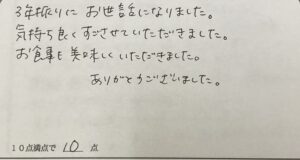 3年振りに お世話になりました。
気持ち良く すごさせていただきました。
お食事も 美味しく いただきました。
ありがとうございました。
10点満点で 10 点